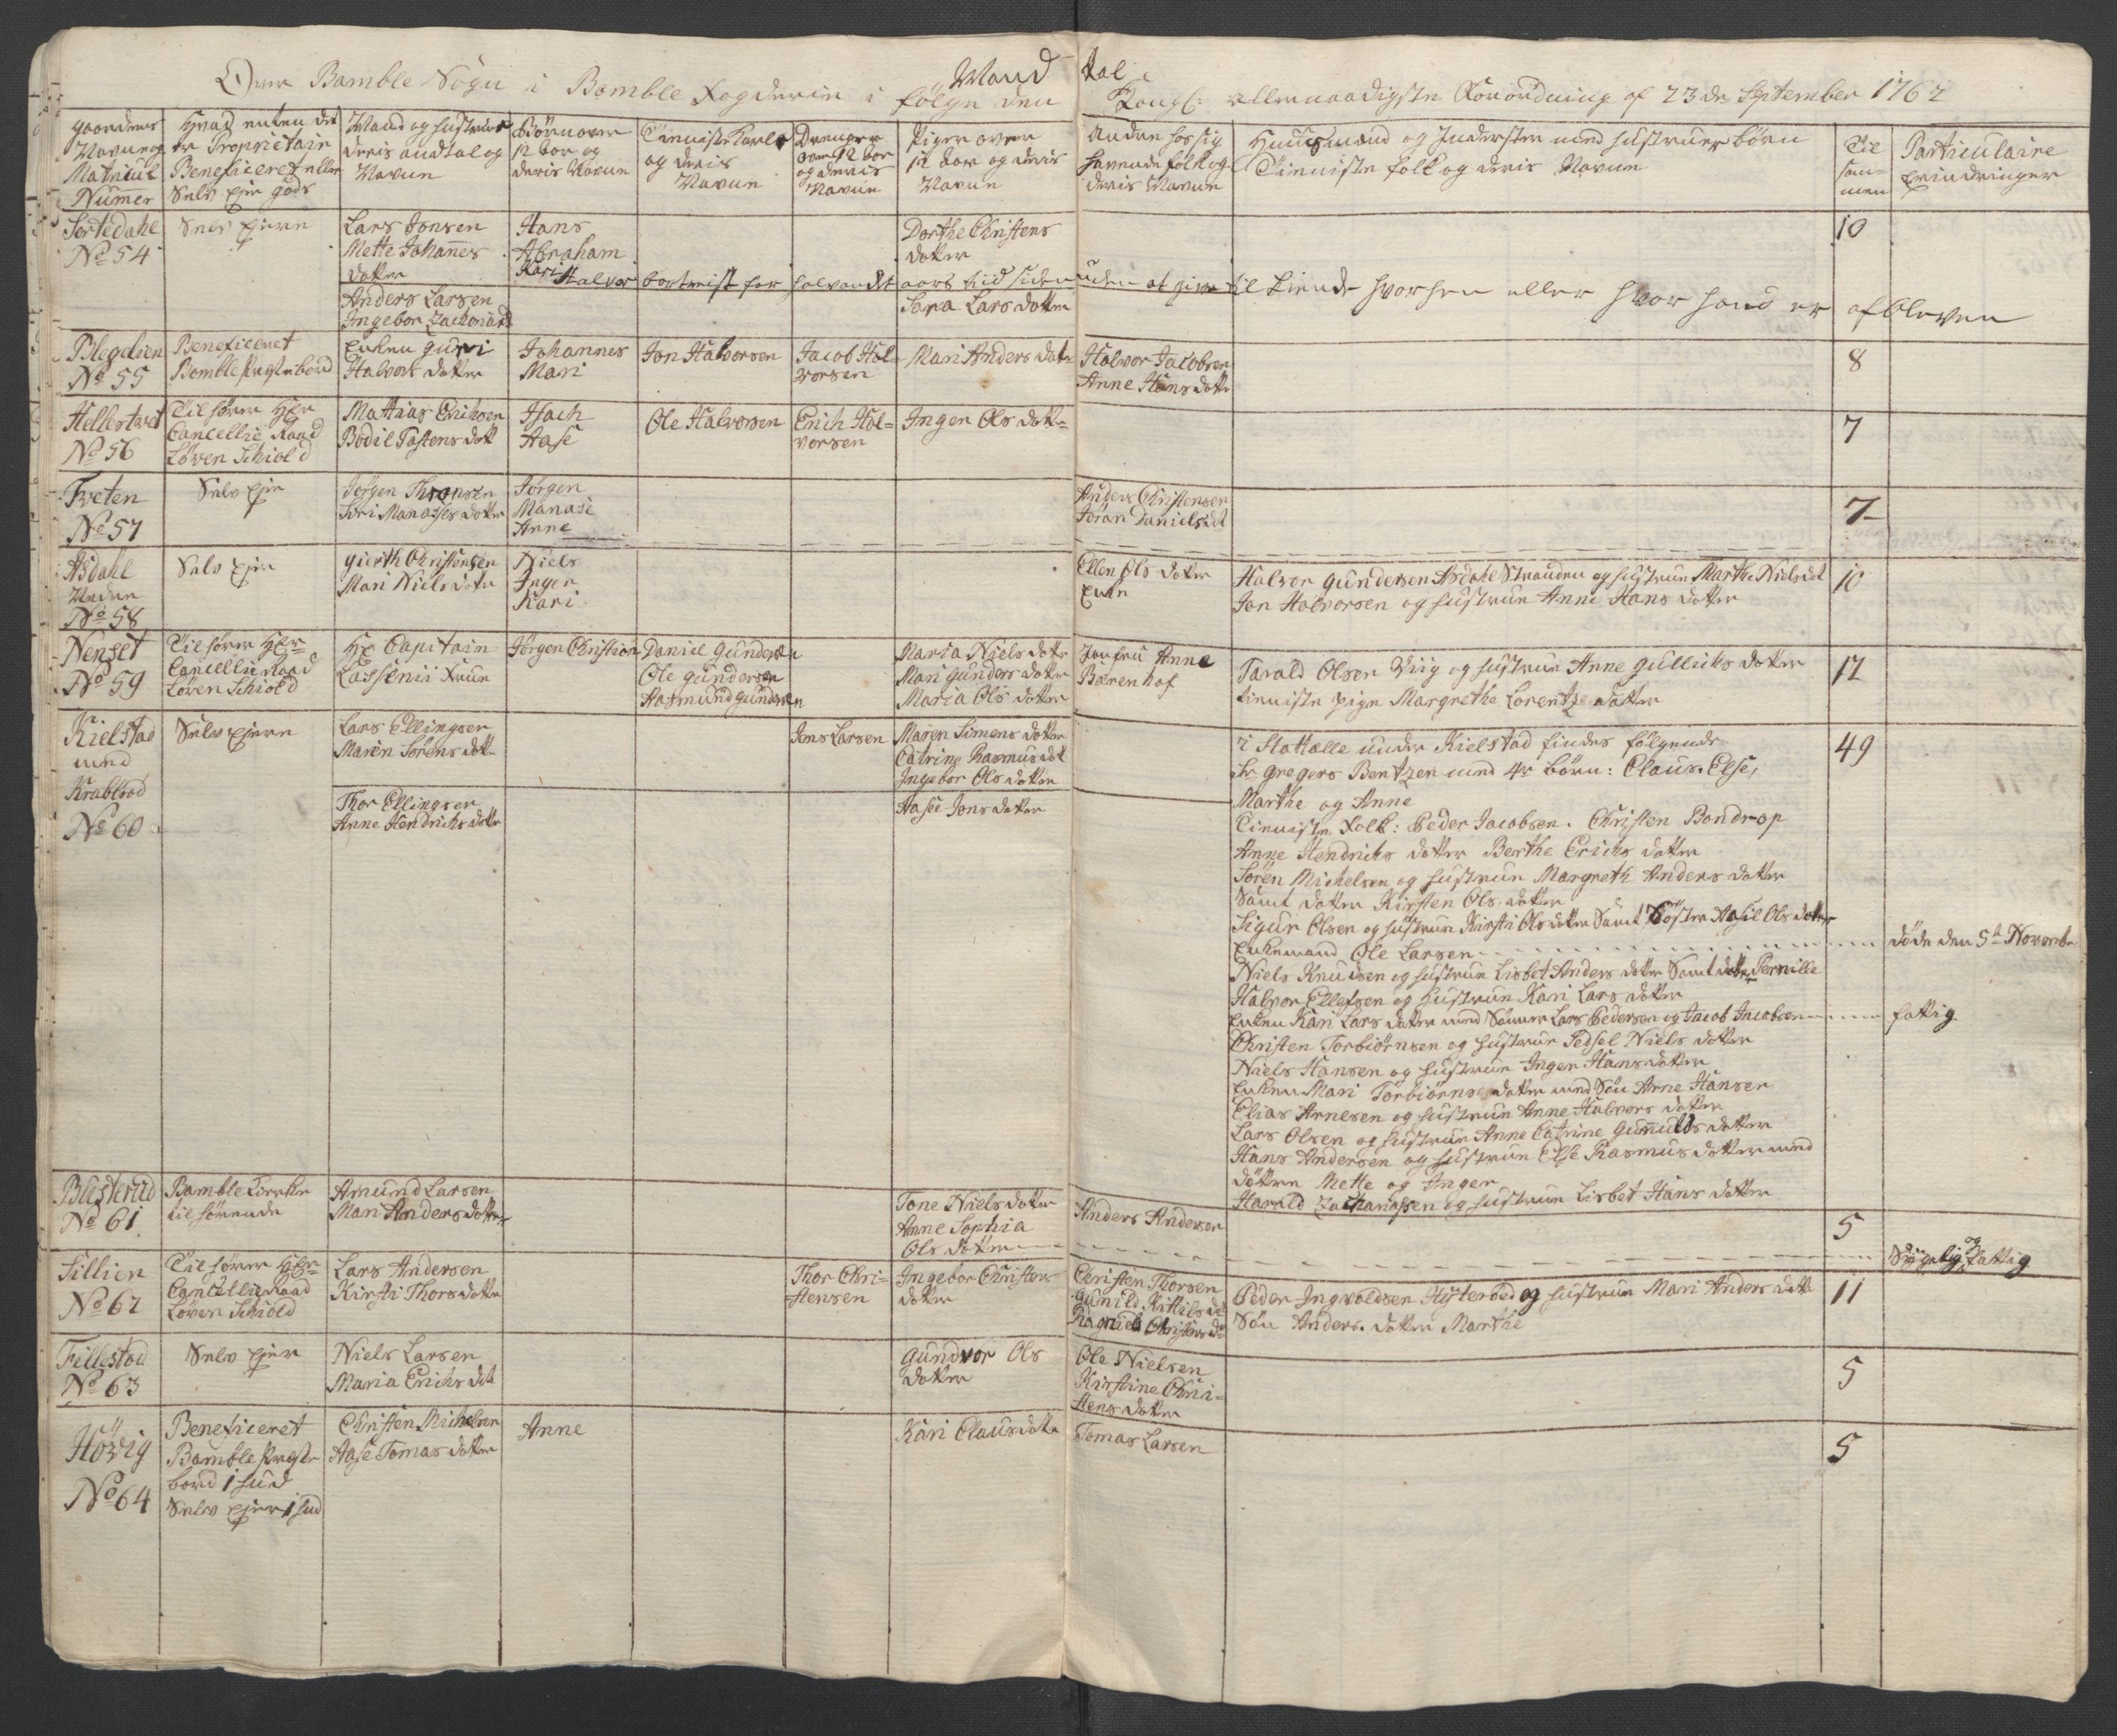 Mand tal
Over Bamble Sogn i Bamble Fogderie i følge den Kongl: allernaadigste Forordning af 23de September 1762
Gaardenes Navne og Matricul Numer
Hvad enten det er Proprietair Beneficeret eller Selv Ejer gods
Mand og Hustruer deris andtal og Navne
Børn over 12 aar og deris Navne
Tieniste Karle og deris Navne
Drenge over 12 aar og deris Navne
Piger over 12 aar og deris Navne
Andre hos sig havende folk og deris Navne
Huusmænd og Inderster med hustruer børn Tieniste folk og deris Navne
Til sam=men
Particulaire Erindringer
Sortedahl
No 54
Selv Ejere
Lars Jonsen
Mette Johannes
datter
Hans
Abraham
Kari
Dorthe Christens
datter
10
Halvor bortreist for halvandet aars tiid siden uden at give til kiende hvorhen eller hvor hand er afbleven
Anders Larsen
Ingebor Zachariæd
Sara Lars datter
No 55
Beneficeret
Bamble Præstebord
Enken Guri
Halvors datter
Johannes
Mari
Jon Halvorsen
Jacob Hal-
vorsen
Mari Anders datr
Halvor Jacobsen
Anne Hans datr
8
Hellestvet
No 56
Tilhører Hr
Cancellie Raad
Løvenschiold
Mathias Erichsen
Bodil Tostens datt
Isach
Aase
Ole Halvorsen
Erich Hal=
vorsen
Inger Ols datt=
7
Tveten
No 57
Selv Ejer
Jørgen Thronsen
Siri Manasses datter
Jørgen
Manase
Anne
Anders Christensen
Joran Daniels dt
7
Asdahl
Nedre
No 58
Selv Ejer
Gierth Christensen
Mari Niels datter
Niels
Inger
Kari
Ellen Ols datter
Halvor Gundersen Asdahl Stranden og hustrue Marthe Niels dt
Jon Halvorsen og hustrue Anne Hans datter
10
Nenset
No 59
Tilhører Hr
Cancellie Raad
Løvenschiold
Hr Capitain
Lassenii Frue
Jørgen Christian
Daniel Gundersen
Ole Gundersen
Aasmund Gundersen
Maria Niels datr
Mari Gunders datter
Maria Ols datter
Jonfru Anne
Bærenhof
Tarald Olsen Viig og hustrue Anne Gullichs datter
tieniste pige Margrethe Lorentze datter
12
Kielstad
med
No 60
Selv Ejere
Lars Ellingsen
Maren Sørens datr
Jens Larsen
Maren Simens datter
Catrine Rasmus dat
Ingebor Ols datter
Thor Ellingsen
Anne Hendrichs datter
Aase Jons datter
i Stathalle under Kielstad findes følgende
Sr Gregers Bentzen med 4re børn: Claus. Else,
Marthe og Anne
Tieniste folk: Peder Jacobsen. Christen Bondrop
Anne Hendrichs datter Berthe Erichs datter
Søren Michelsen og hustrue Margreth Anders datter
Samt datter Kirsten Ols datter
Sigur Olsen og hustrue Kirsti Ols datter Samt Søster Aasil Ols datter
Enkemand Ole Larsen
Niels Knudsen og hustrue Lisbet Anders datter Samt datter Pernille
Halvor Ellefsen og hustrue Kari Lars datter
Enken Kari Lars datter med Sønner Lars Pedersen og Jacob Jacobsen
Christen Torbiørnsen og hustrue Sedsel Niels datter
Niels Hansen og hustrue Inger Hans datter
Enken Mari Torbiørns datter med Søn Arne Hansen
Elias Arnesen og hustrue Anne Halvors datter
Lars Olsen og hustrue Anne Catrine Gunnulds datter
Hans Andersen og hustrue Else Rasmus datter med
døttre Mette og Inger
Harald Zachariassen og hustrue Lisbet Hans datter
49
døde den 5te Novembr
fattig
Busterud
No 61
Bamble Kierke
tilhørende
Amund Larsen
Mari Anders datter
Tone Niels datter
Anne Sophia
Ols datter
Anders Andersen
5
Sygelig og fattig
Tillien
No 62
Tilhører Hr
Cancellie Raad
Løvenschiold
Lars Andersen
Kirsti Thors datter
Thor Chri=
stensen
Ingebor Christens
datter
Christen Thorsen
Gunild Kittils dt
Ragnild Christens dt
Peder Ingvoldsen Hysterød og hustrue Mari Anders datr
Søn Anders. datter Marthe
11
Fillestad
No 63
Selv Ejer
Niels Larsen
Maria Erichs dat
Gundvor Ols
datter
Ole Nielsen
Kirstine Chri=
stens datter
5
Høvig
No 64
Beneficeret
Bamble Præste
bord 1 hud
Selv Ejer 1 hud
Christen Michelsen
Aase Tomas datter
Anne
Kari Claus datter
Tomas Larsen
5